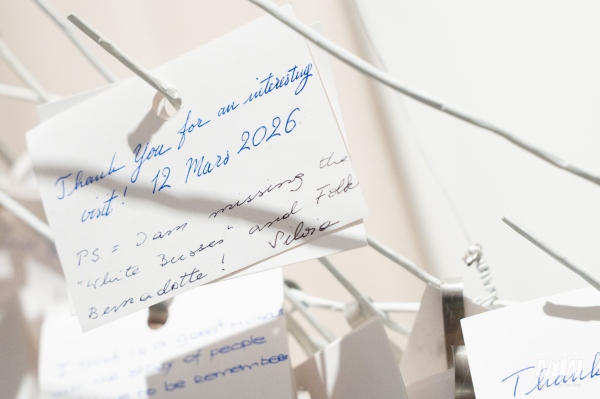 Thank You for an interesting
visit! 12 Mars 2026
P.S. = I am missing the
"White Busses" and Folk
Bernadotte! Silvia
story of people
to be remember
Thank